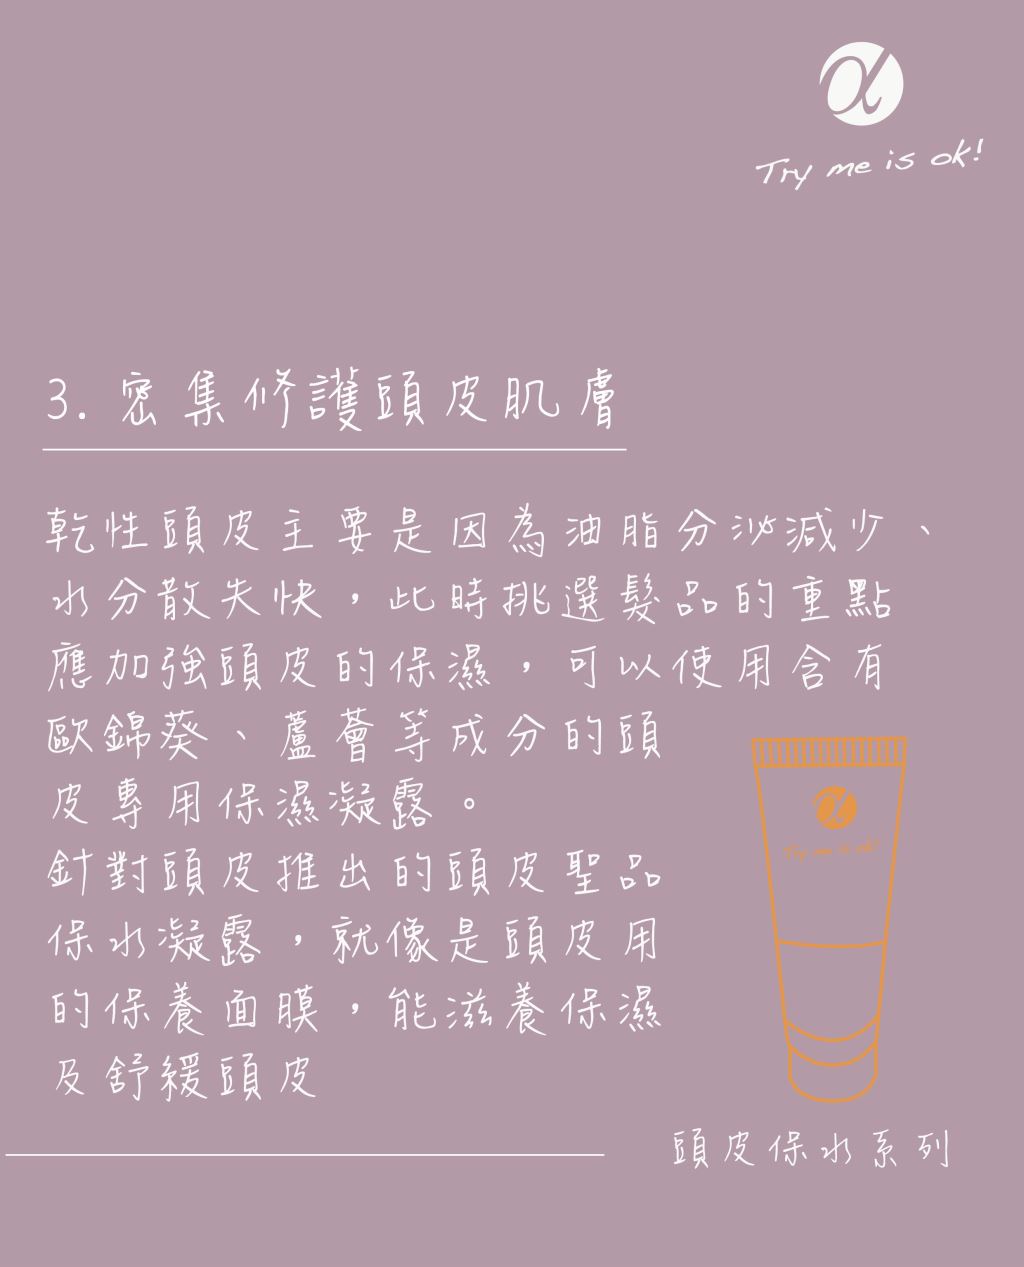 α
Try me is ok!
3. 密集修護頭皮肌膚
乾性頭皮主要是因為油脂分泌減少、
水分散失快，此時挑選髮品的重點
應加強頭皮的保濕，可以使用含有
歐錦葵、蘆薈等成分的頭
皮專用保濕凝露。
針對頭皮推出的頭皮聖品
保水凝露，就像是頭皮用
的保養面膜，能滋養保濕
及舒緩頭皮
α
Try me is ok!
頭皮保水系列